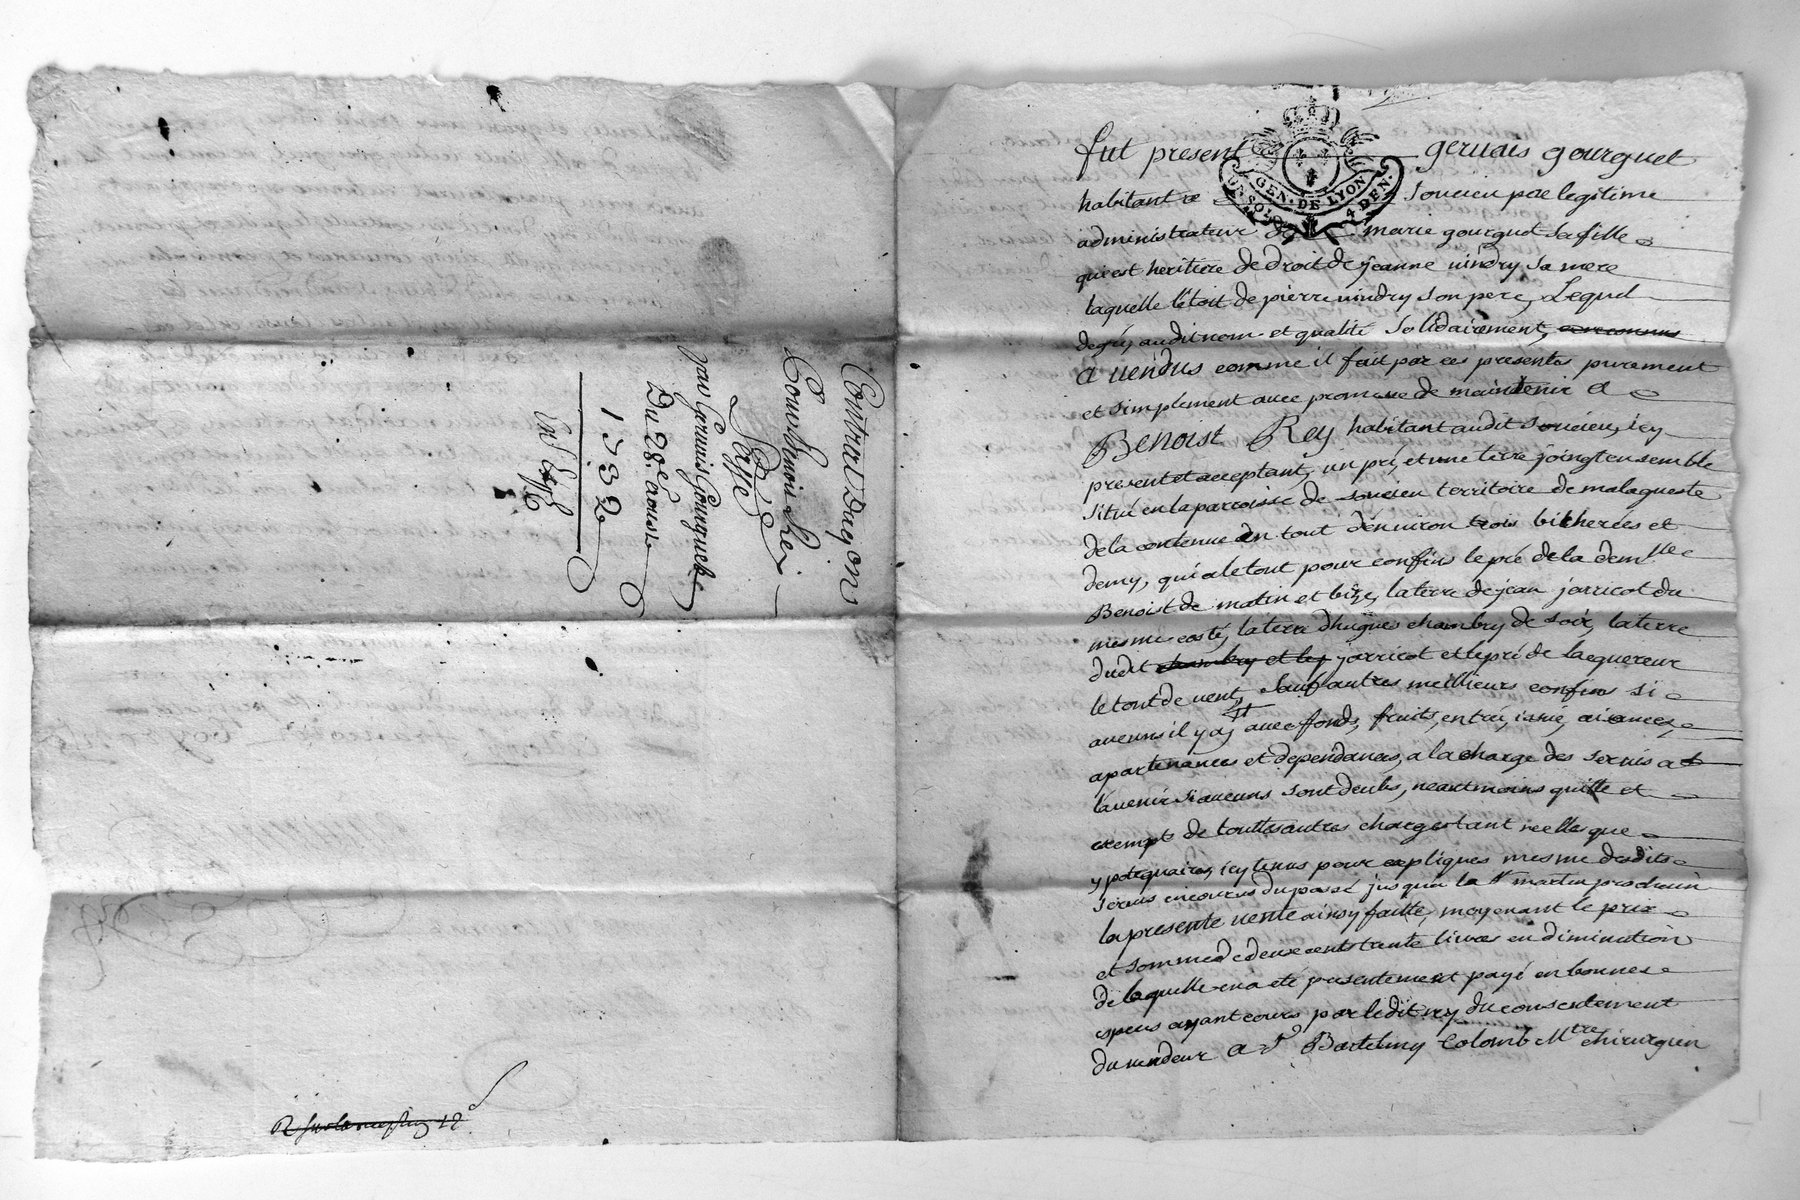 Contrat Daq͠on
Pour Benoit Rei
Passé
par Gervais Gourguet
Du 28e aoust
1732
R
GEN. DE LYON
UN SOL 4 DEN.
fut present gervais gourguet
habitant a soucieu pere legitime
administrateur de marie gourguet sa fille
qui est heritiere de droit de jeanne vindry sa mere
laquelle l'étoit de pierre vindry son pere, Lequel
de gré, audit nom et qualité solidairement,
a vendus comme il fait par ces presentes purement
et simplement avec promesse de maintenir a
Benoist Rey habitant audit soucieu, icy
present et acceptant, un pré, et une terre joingt ensemble
situé en la parroisse de soucieu territoire de malagueste
de la contenue en tout d'environ trois bicherées et
demy, qui a le tout pour confins le pré de la demlle
Benoist de matin et bize, la terre de jean jarricot du
mesme costé, la terre d'hugues chambry de soir, la terre
dudit chambry et les jarricot et le pré de lacquereur
le tout de vent, sauf autres meilleurs confins si
aucuns il y a, avec fonds, fruits, entrée, issüe, aisances,
apartenances et dependances, a la charge des servis a
l'avenir si aucuns sont deubs, neantmoins quitte et
exempt de touttes autres charges tant reelles que
ypotequaires, icy tenus pour expliques mesme desdits
servis encourus du passé jusqu'a la st martin prochain
la presente vente ainsy faitte, moyenant le prix
et somme de deux cents trente livres en diminution
de laquelle en a été presentement payé en bonnes
especes ayant cours par ledit rey du consentement
du vendeur a sr Bartelmy Colomb Mtre chirurgien